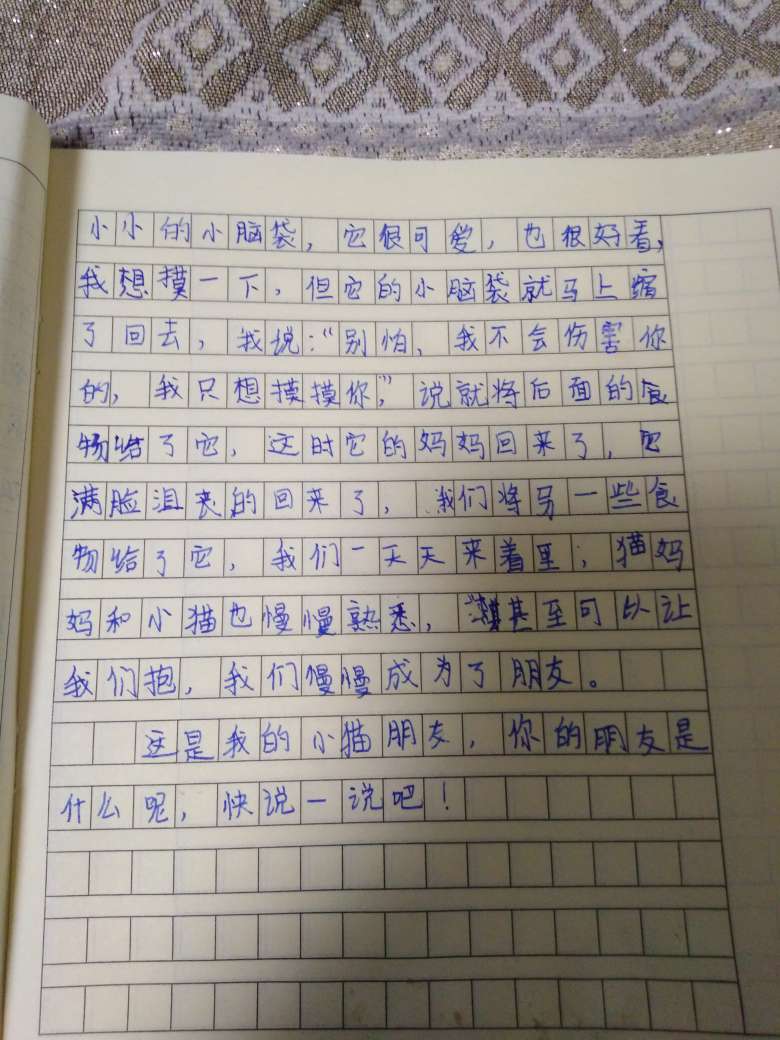 小小的小脑袋，它很可爱，也很好看，
我想摸一下，但它的小脑袋就马上缩
了回去，我说：“别怕，我不会伤害你
的，我只想摸摸你，”说就将后面的食
物给了它，这时它的妈妈回来了，它
满脸沮丧的回来了，我们将另一些食
物给了它，我们一天天来着里，猫妈
妈和小猫也慢慢熟悉，甚至可以让
我们抱，我们慢慢成为了朋友。
这是我的小猫朋友，你的朋友是
什么呢，快说一说吧！